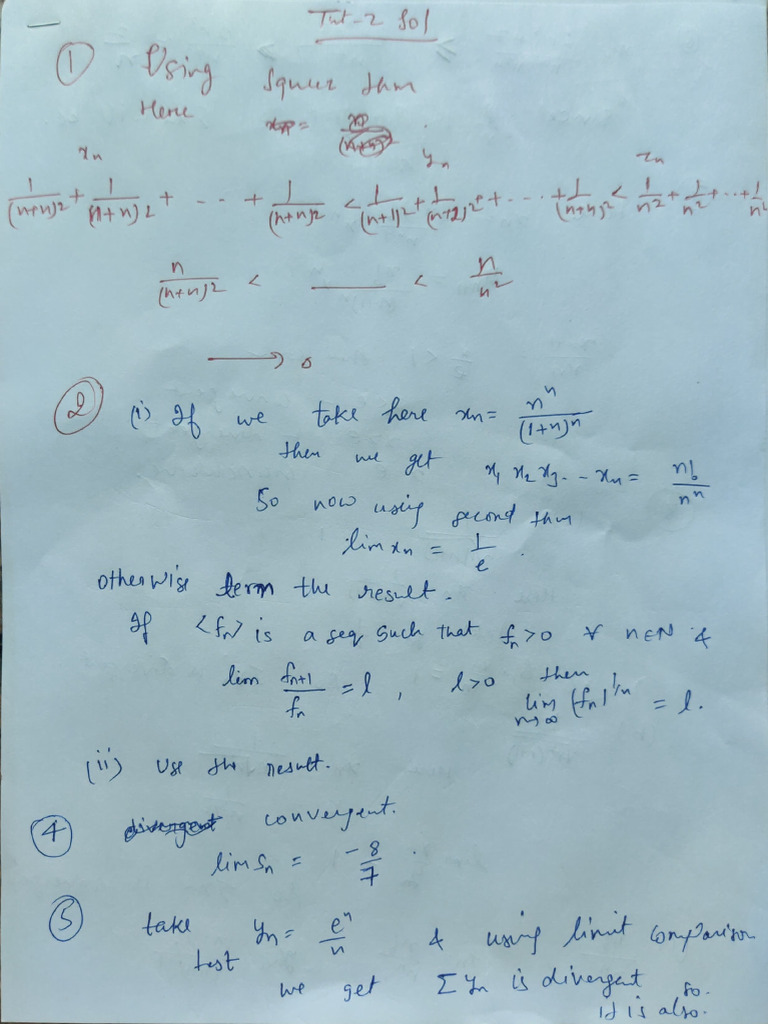 Tut-2 Sol
① Using Squeez thm
Here
xₙ yₙ zₙ
1/(n+n)2 + 1/(n+n)2 + - - - + 1/(n+n)2 < 1/(n+1)2 + 1/(n+2)2 + - - - + 1/(n+n)2 < 1/n2 + 1/n2 + - - + 1/n2
n/(n+n)2 < ___ < n/n2
⟶ 0
② (i) If we take here xn = nⁿ/(1+n)ⁿ
then we get x₁ x₂ x₃ - - xn = n!/nⁿ
So now using second thm
lim xn = 1/e .
otherwise term the result.
If <fn> is a seq such that fn>0 ∀ n∈N &
lim fn+1/fn = l , l>0 then lim n→∞ (fn)^1/n = l.
(ii) Use the result.
④ convergent.
lim Sn = -8/7 .
⑤ take yn = eⁿ/n & using limit comparison
test we get Σ yn is divergent so.
it is also.